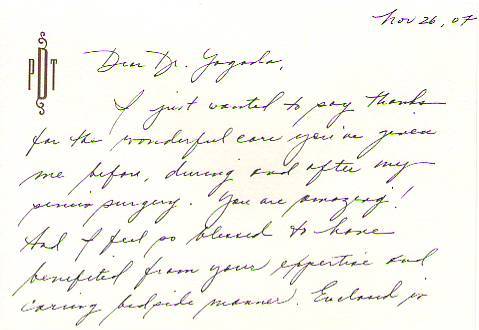 Nov 26, 07
PDT
Dear Dr. Yagoda,
I just wanted to say thanks
for the wonderful care you've given
me before, during and after my
sinus surgery. You are amazing!
And I feel so blessed to have
benefited from your expertise and
caring bedside manner. Enclosed is